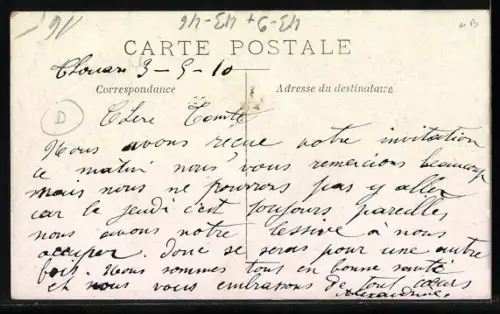 43-9+43-46
CARTE POSTALE
3-5-10
Correspondance
Adresse du destinataire
D
Chere Tomte
Nous avons reçue votre invitation
ce matin nous vous remercions beaucoup
mais nous ne pouvons pas y aller
car le jeudi c'est toujours pareilles
nous avons notre lessive à nous
occuper. donc se seras pour une autre
fois. Nous sommes tous en bonne santé
et nous vous embrassons de tout cœurs
Alexandrine